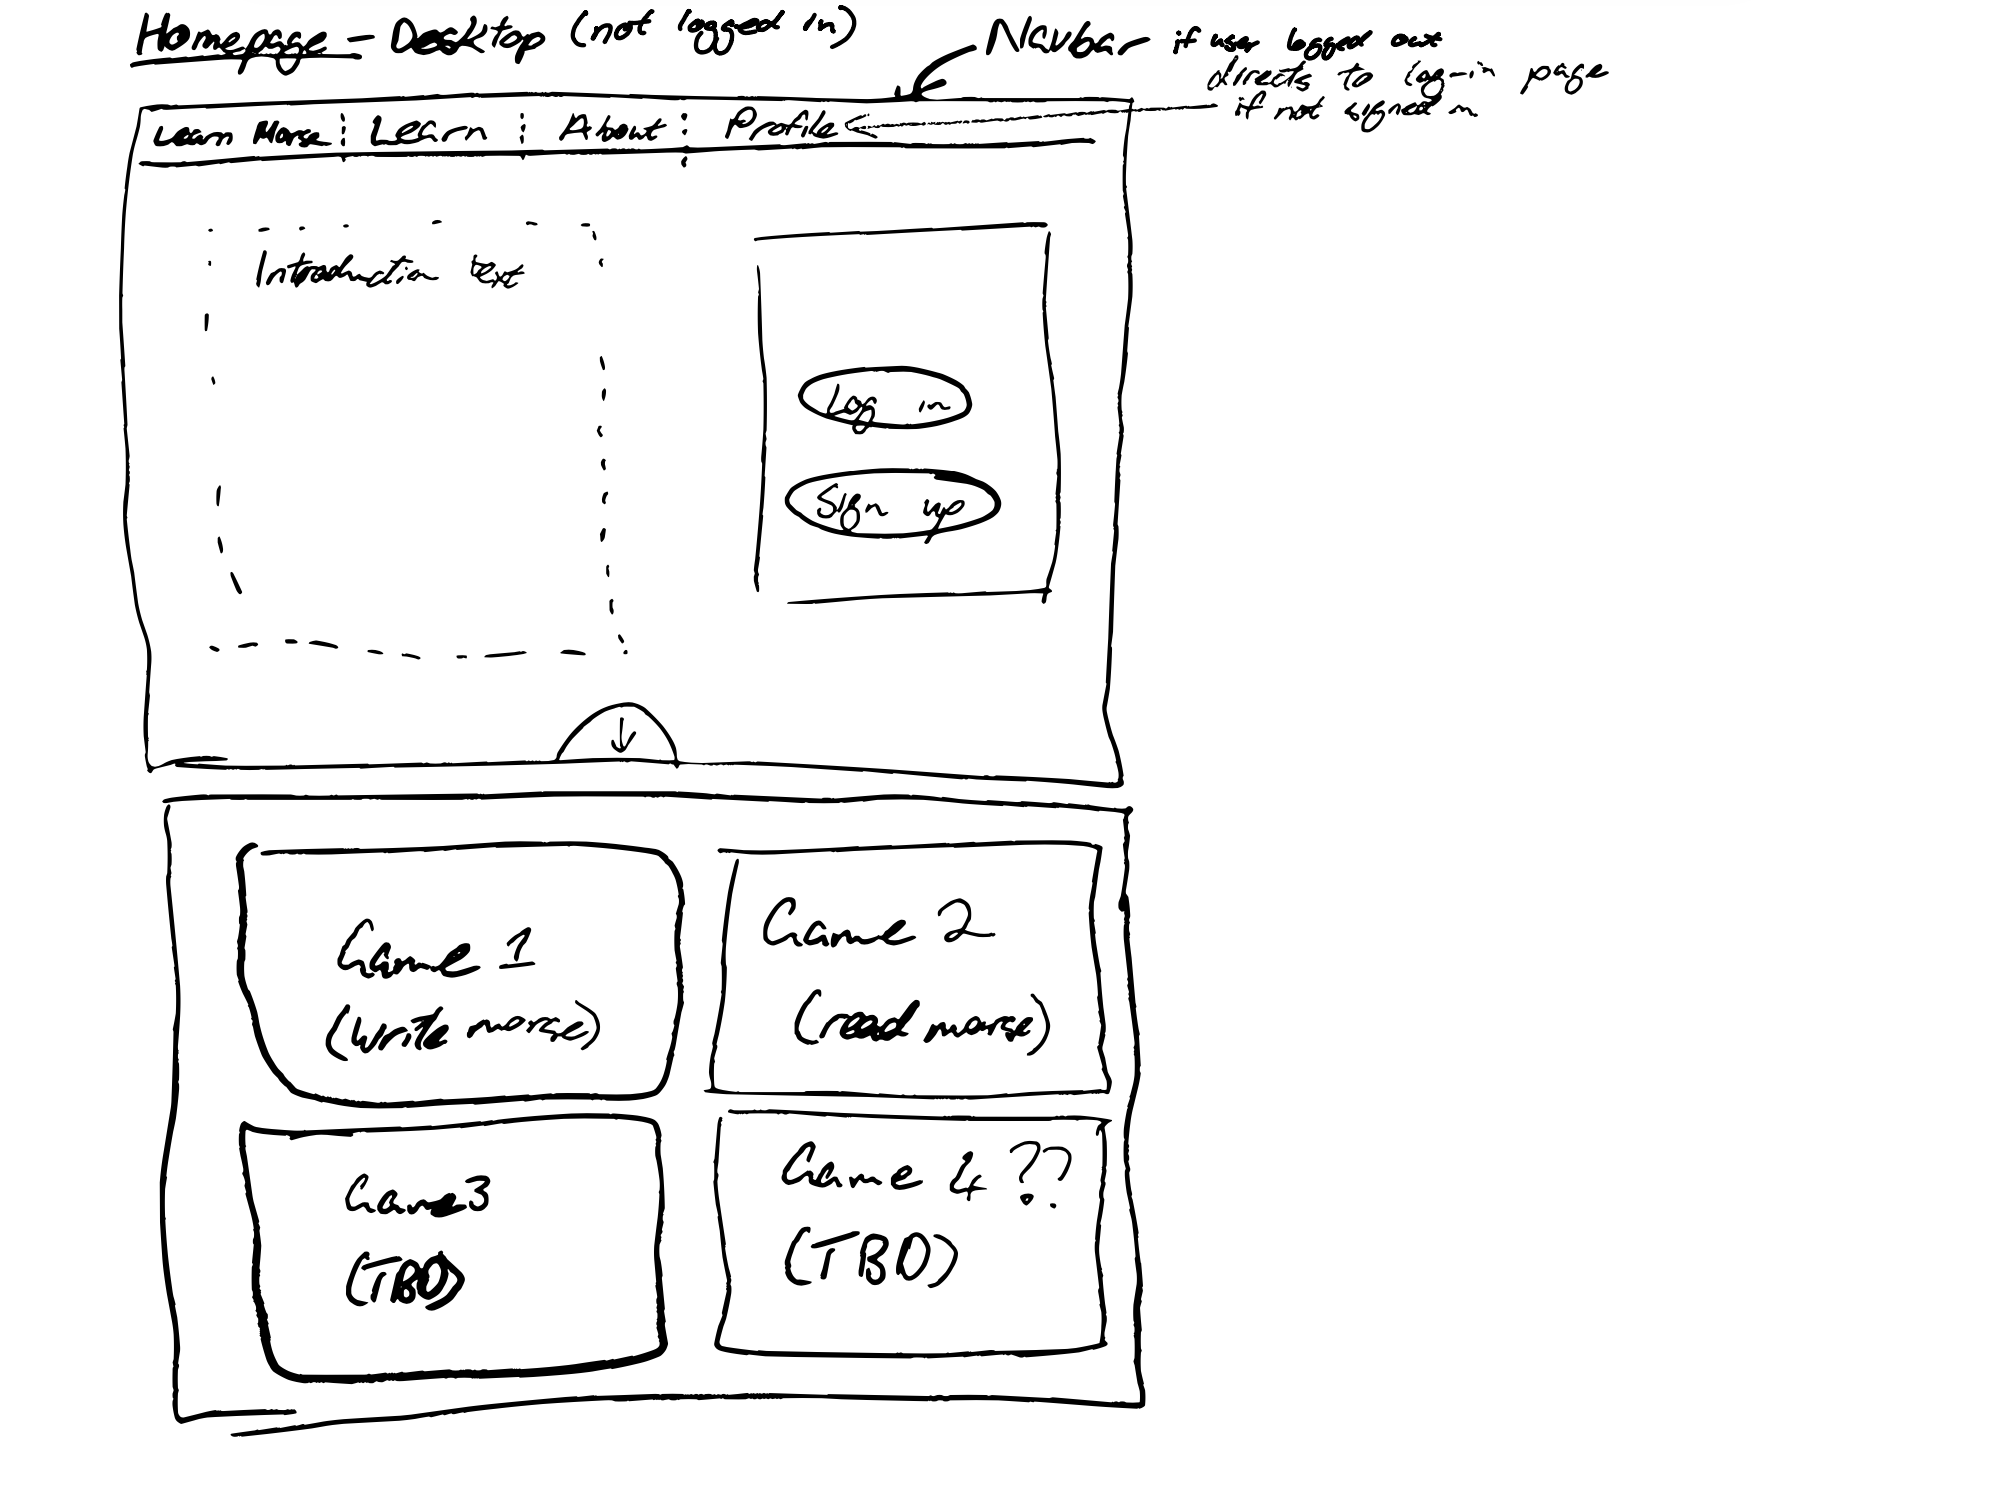 Homepage - Desktop (not logged in)
Navbar if user logged out
directs to log-in page
if not signed in
Learn Morse Learn About Profile
Introduction text
Log in
Sign up
Game 1
(write morse)
Game 2
(read morse)
Game 3
(TBD)
Game 4 ??
(TBD)